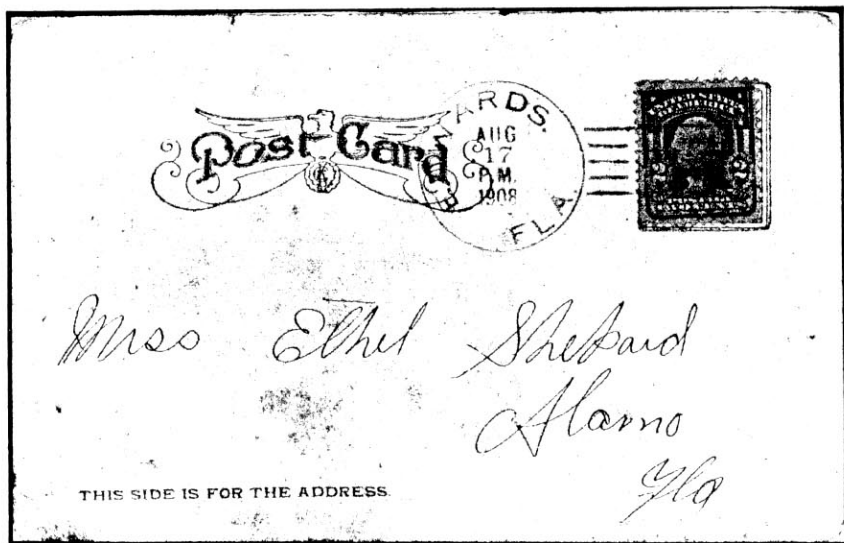 Post Card
AUG
17
P.M.
1908
FLA.
2 2
Miss Ethel Shepard
Alamo
Fla
THIS SIDE IS FOR THE ADDRESS.